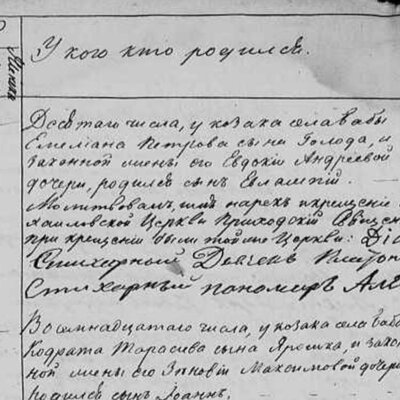 У кого кто родился.
Десятаго числа, у козака села Бабы
Емелiана Петрова сына Голода, и
законной жены его Евдокiи Андреевой
дочери, родился сынъ Евлампiй.
Молитвовалъ, имя нарекъ и крещенiе
хаиловской Церкви Приходскiй Священ
при крещенiи были тойже Церкви: Дiа
Стихарный Дьячекъ Плато
Стихарный пономарь Але
Восемнадцатаго числа, у козака села Баб
Кодрата Тарасева сына Ярошка, и зако
ной жены его Зеновiи Максимовой дочери
родился сынъ Iоаннъ.